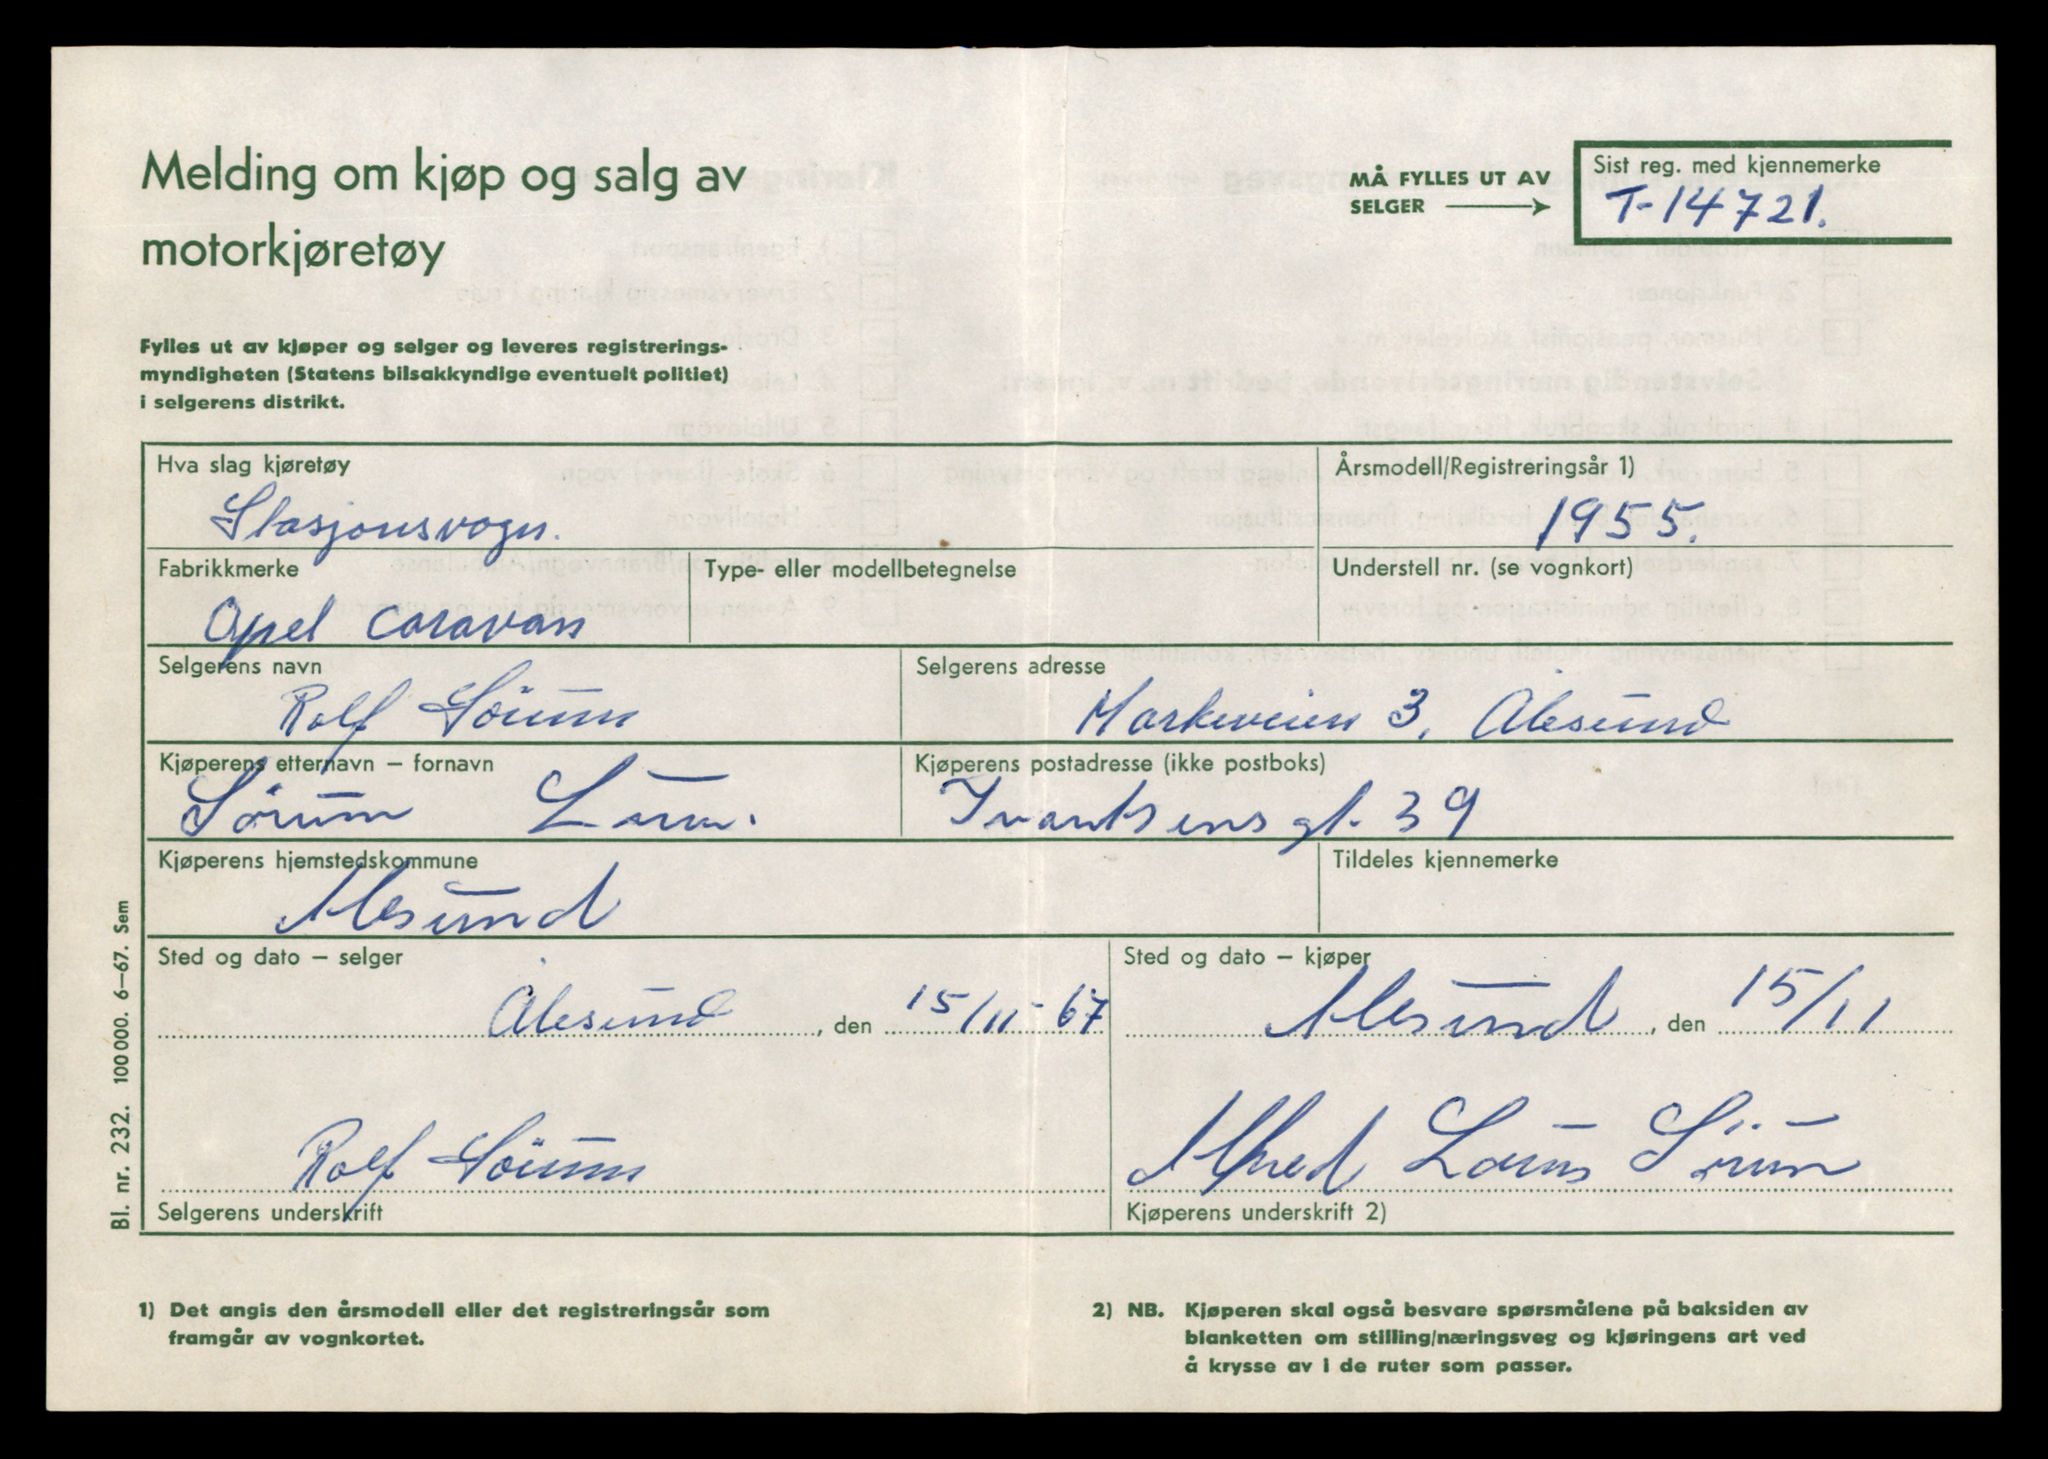 Melding om kjøp og salg av
motorkjøretøy
MÅ FYLLES UT AV
SELGER
Sist reg. med kjennemerke
T-14721.
Fylles ut av kjøper og selger og leveres registrerings-
myndigheten (Statens bilsakkyndige eventuelt politiet)
i selgerens distrikt.
Hva slag kjøretøy
Stasjonsvogn.
Årsmodell/Registreringsår 1)
1955.
Fabrikkmerke
Opel caravan
Type- eller modellbetegnelse
Understell nr. (se vognkort)
Selgerens navn
Rolf Sörum
Selgerens adresse
Markeveien 3, Ålesund
Kjøperens etternavn – fornavn
Sörum
Kjøperens postadresse (ikke postboks)
gt. 39
Kjøperens hjemstedskommune
Alesund
Tildeles kjennemerke
Sted og dato – selger
Ålesund, den 15/11-67
Sted og dato – kjøper
Alesund, den 15/11
Rolf Sörum
Selgerens underskrift
Alfred Sörum
Kjøperens underskrift 2)
Bl. nr. 232. 100 000. 6–67. Sem
1) Det angis den årsmodell eller det registreringsår som
framgår av vognkortet.
2) NB. Kjøperen skal også besvare spørsmålene på baksiden av
blanketten om stilling/næringsveg og kjøringens art ved
å krysse av i de ruter som passer.